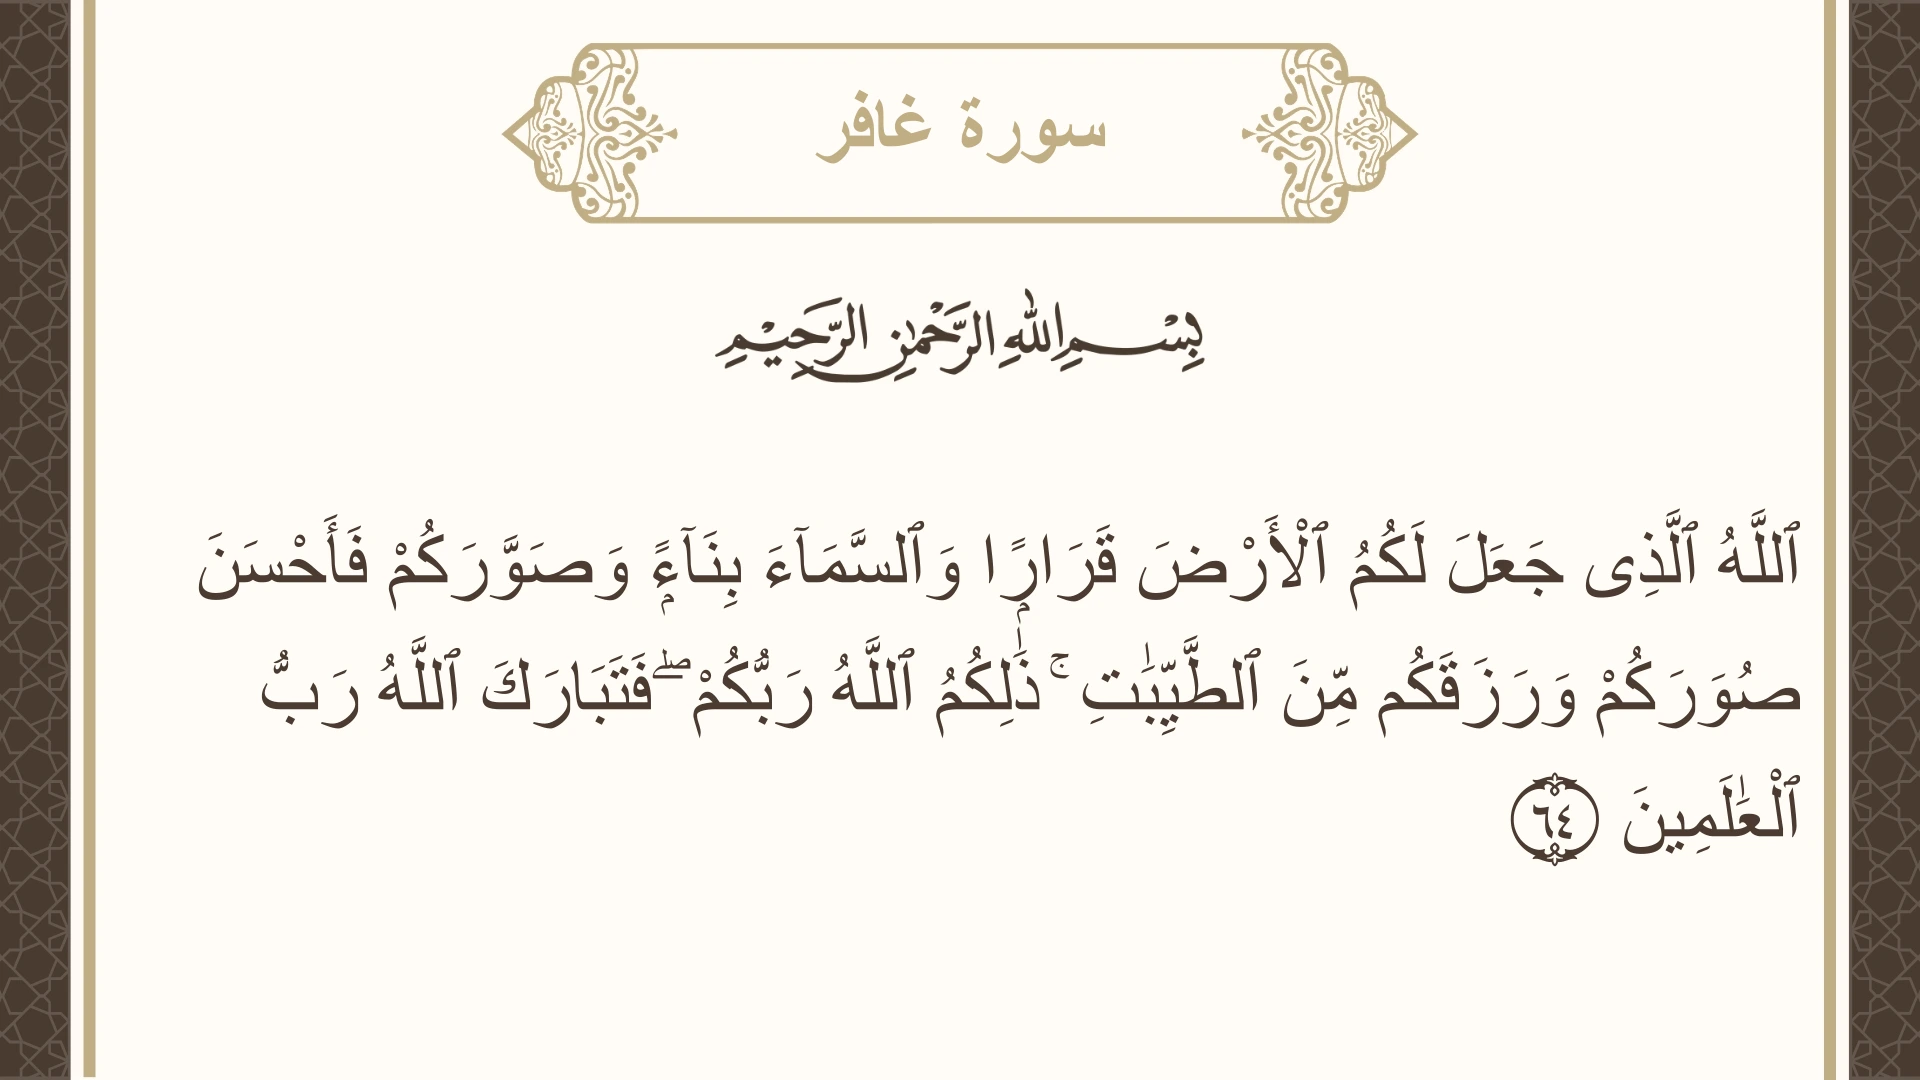 سورة غافر
بِسْمِ اللهِ الرَّحْمٰنِ الرَّحِيْمِ
ٱللَّهُ ٱلَّذِى جَعَلَ لَكُمُ ٱلْأَرْضَ قَرَارًۭا وَٱلسَّمَآءَ بِنَآءًۭ وَصَوَّرَكُمْ فَأَحْسَنَ
صُوَرَكُمْ وَرَزَقَكُم مِّنَ ٱلطَّيِّبَٰتِ ۚ ذَٰلِكُمُ ٱللَّهُ رَبُّكُمْ ۖ فَتَبَارَكَ ٱللَّهُ رَبُّ
ٱلْعَٰلَمِينَ ٦٤